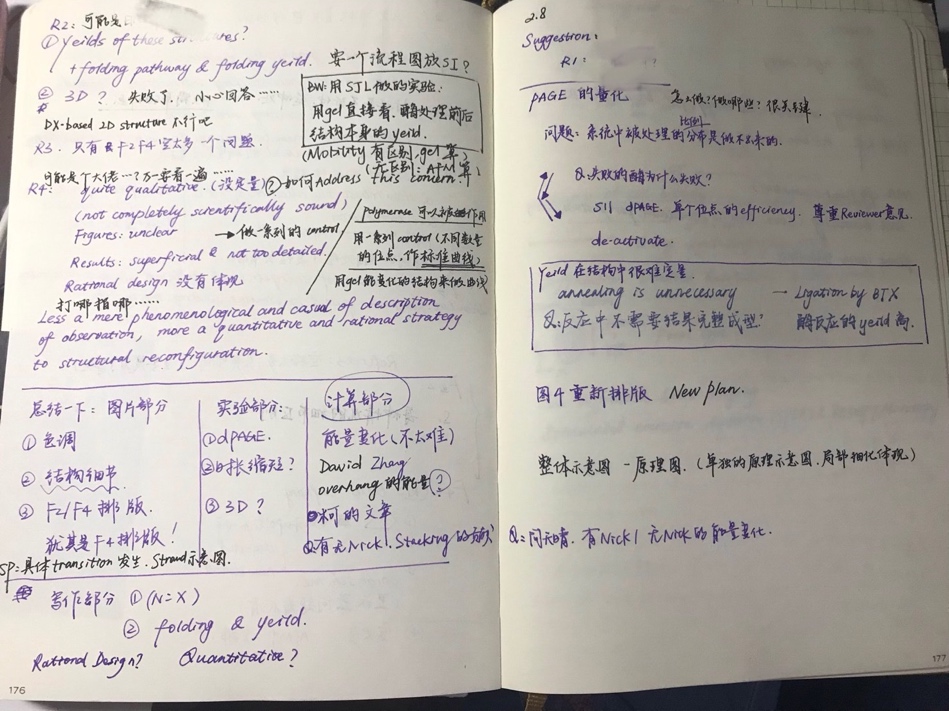 R2: 可能是
① Yeilds of these structures?
+folding pathway & folding yeild.
要一个流程图放SI?
② 3D? 失败了. 小心回答……
DX-based 2D structure 不行吧
BW: 用SJL做的实验:
用gel直接看.酶处理前后
结构本身的yeild.
(Mobility有区别,gel算)
(无区别: AFM算)
R3. 只有F2F4空太多一个问题.
可能是个大佬…?万一要看一遍……
R4: quite qualitative.(没定量) ? 如何Address this concern?
(not completely scientifically sound)
Figures: unclear → 做一系列的control
Results: superficial & not too detailed.
Rational design 没有体现
polymerase 可以被 作用
用一系列control(不同数量
的位点,作标准曲线)
用gel能变化的结构来做曲线
打哪指哪……
Less a mere phenomenological and casual of description
of observation, more a quantitative and rational strategy
to structural reconfiguration.
总结一下: 图片部分
① 色调
② 结构细节
③ F2/F4 排版.
犹其是F4排版!
实验部分:
①dPAGE.
②时长缩短?
③ 3D?
计算部分
能量变化(不太难)
David Zhang
overhang的能量?
柯的文章
Q:有无Nick. Stacking的贡献
SP:具体transition发生. Strand示意图.
写作部分 ①(N=X)
② folding & yeild.
Rational Design? Quantitative?
176
2.8
Suggestion:
R1:
PAGE 的量化 怎么做?做哪些? 很关键.
问题: 系统中被处理的比例分布是做不出来的.
Q:失败的酶为什么失败?
SII dPAGE. 单个位点的efficiency. 尊重Reviewer意见.
de-activate.
Yeild 在结构中很难定量.
annealing is unnecessary → Ligation by BTX
Q:反应中不需要结果完整成型? 酶反应的yeild高.
图4重新排版 New plan.
整体示意图 - 原理图. (单独的原理示意图.局部细化体现)
Q: 问天晴. 有Nick / 无Nick的能量变化.
177